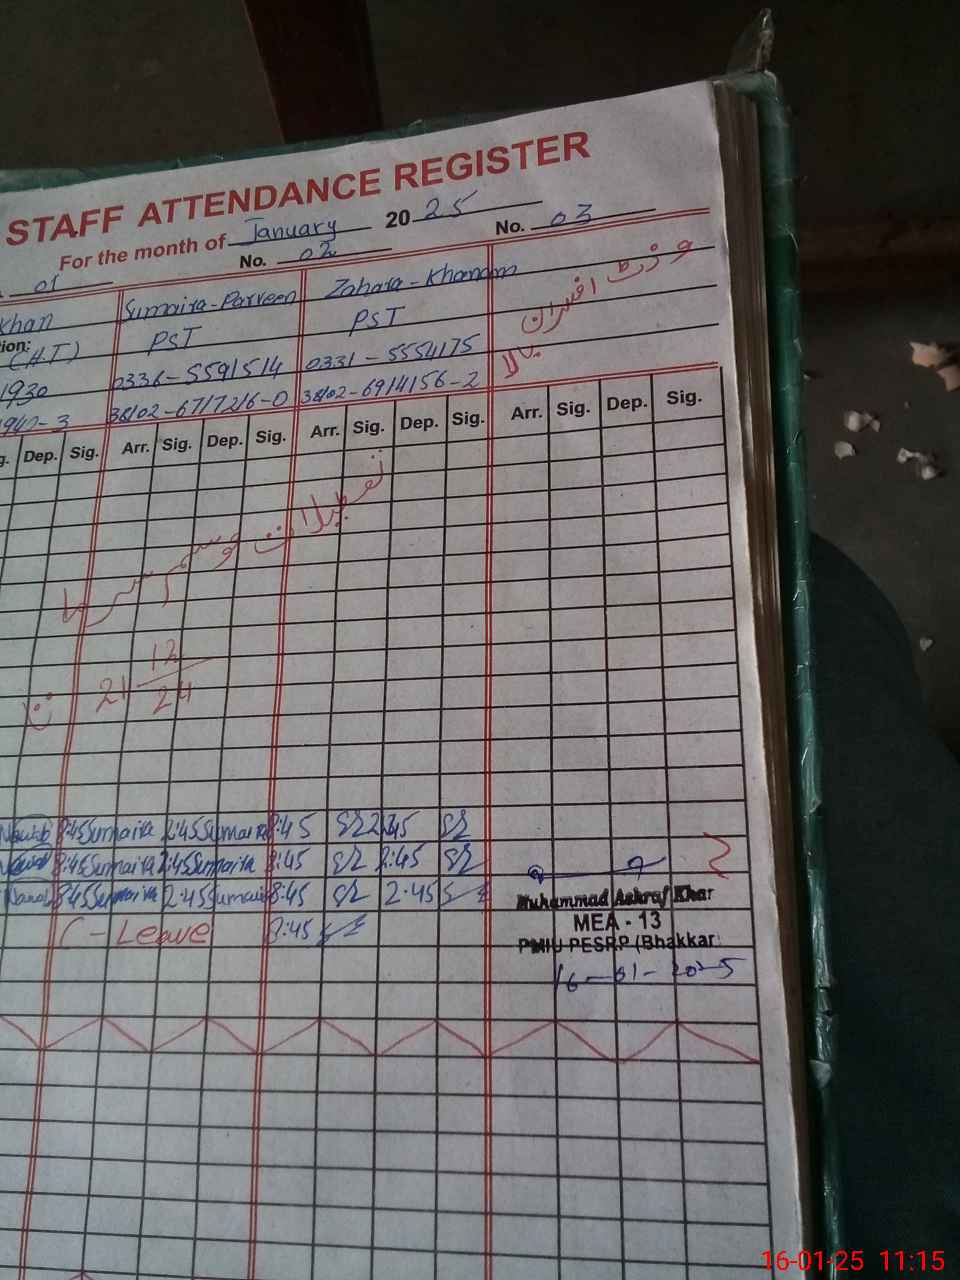 STAFF ATTENDANCE REGISTER
For the month of January 2025
01 No. 02 No. 03
Khan Sumaira-Parveen Zahara-Khanam
tion: (H.T) PST PST
1930 0336-5591514 0331-5554175
1940-3 38102-6717216-0 38102-6914156-2
و زٹ افسران
بالا
g. Dep. Sig. Arr. Sig. Dep. Sig. Arr. Sig. Dep. Sig. Arr. Sig. Dep. Sig.
تعطیلات موسم سرما
21 12/24
8:45 Sumaira 2:45 Sumaira 8:45 2:45
8:45 Sumaira 2:45 Sumaira 8:45 2:45
8:45 Sumaira 2:45 Sumaira 8:45 2:45
C-Leave 8:45
Muhammad Ashraf Khan
MEA - 13
PMIU PESRP (Bhakkar)
16-01-2025
16-01-25 11:15